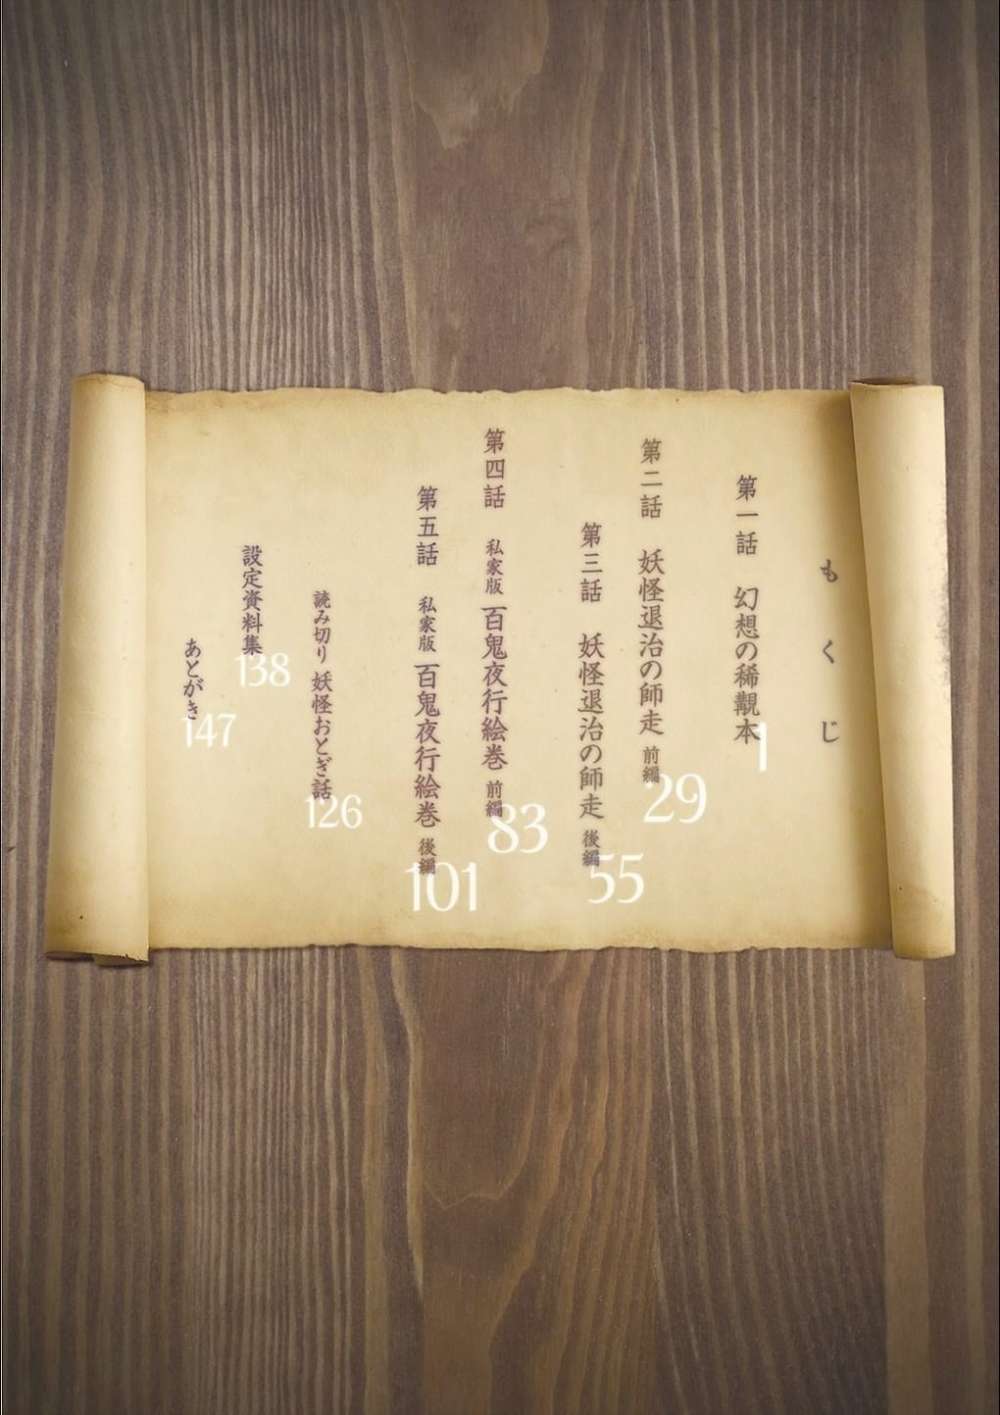 もくじ
第一話 幻想の稀覯本 1
第二話 妖怪退治の師走 前編 29
第三話 妖怪退治の師走 後編 55
第四話 私家版 百鬼夜行絵巻 前編 83
第五話 私家版 百鬼夜行絵巻 後編 101
読み切り 妖怪おとぎ話 126
設定資料集 138
あとがき 147